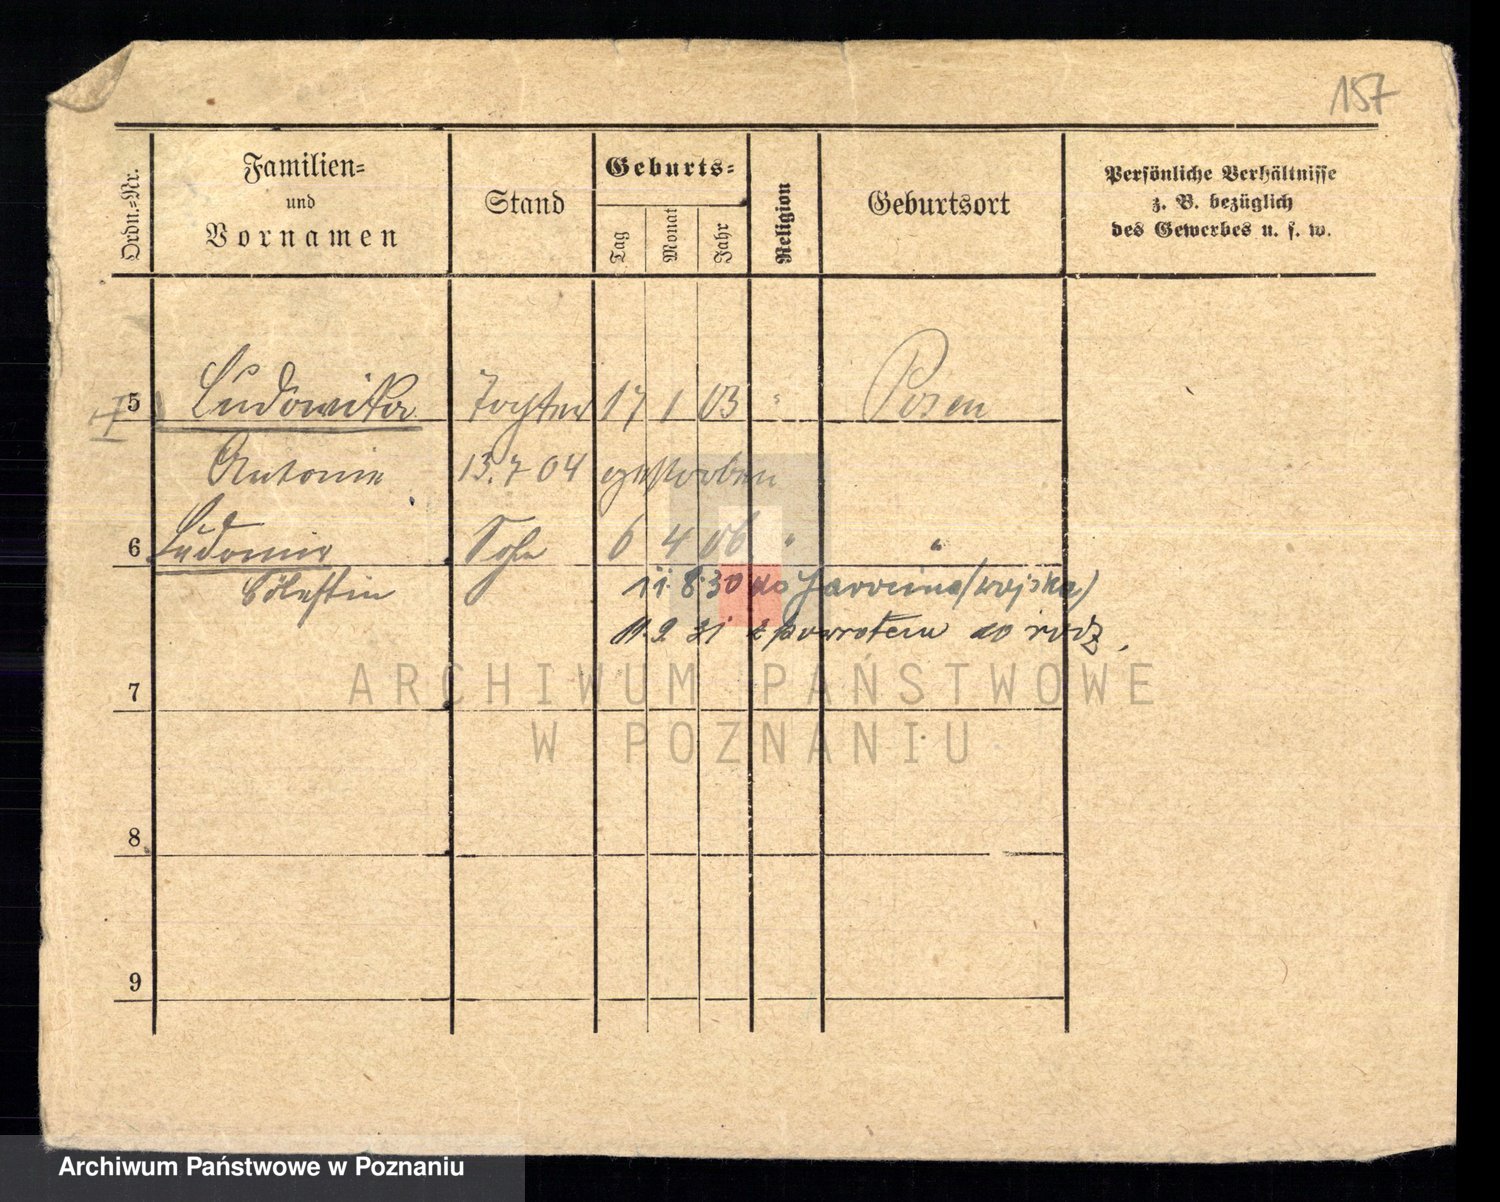 157
Ordn.-Nr.
Familien-
und
Vornamen
Stand
Geburts-
Tag
Monat
Jahr
Religion
Geburtsort
Persönliche Verhältnisse
z. B. bezüglich
des Gewerbes u. s. w.
5 Ludowika Tochter 17 1 03 " Posen
Antonie 13.7 04 gestorben
6 Ludomir Sohn 6 4 06 " "
Cölestin 11.8.30 do Jarocina (wojska)
19.9.31 z powrotem do rodz.
7
ARCHIWUM PAŃSTWOWE
W POZNANIU
8
9
Archiwum Państwowe w Poznaniu